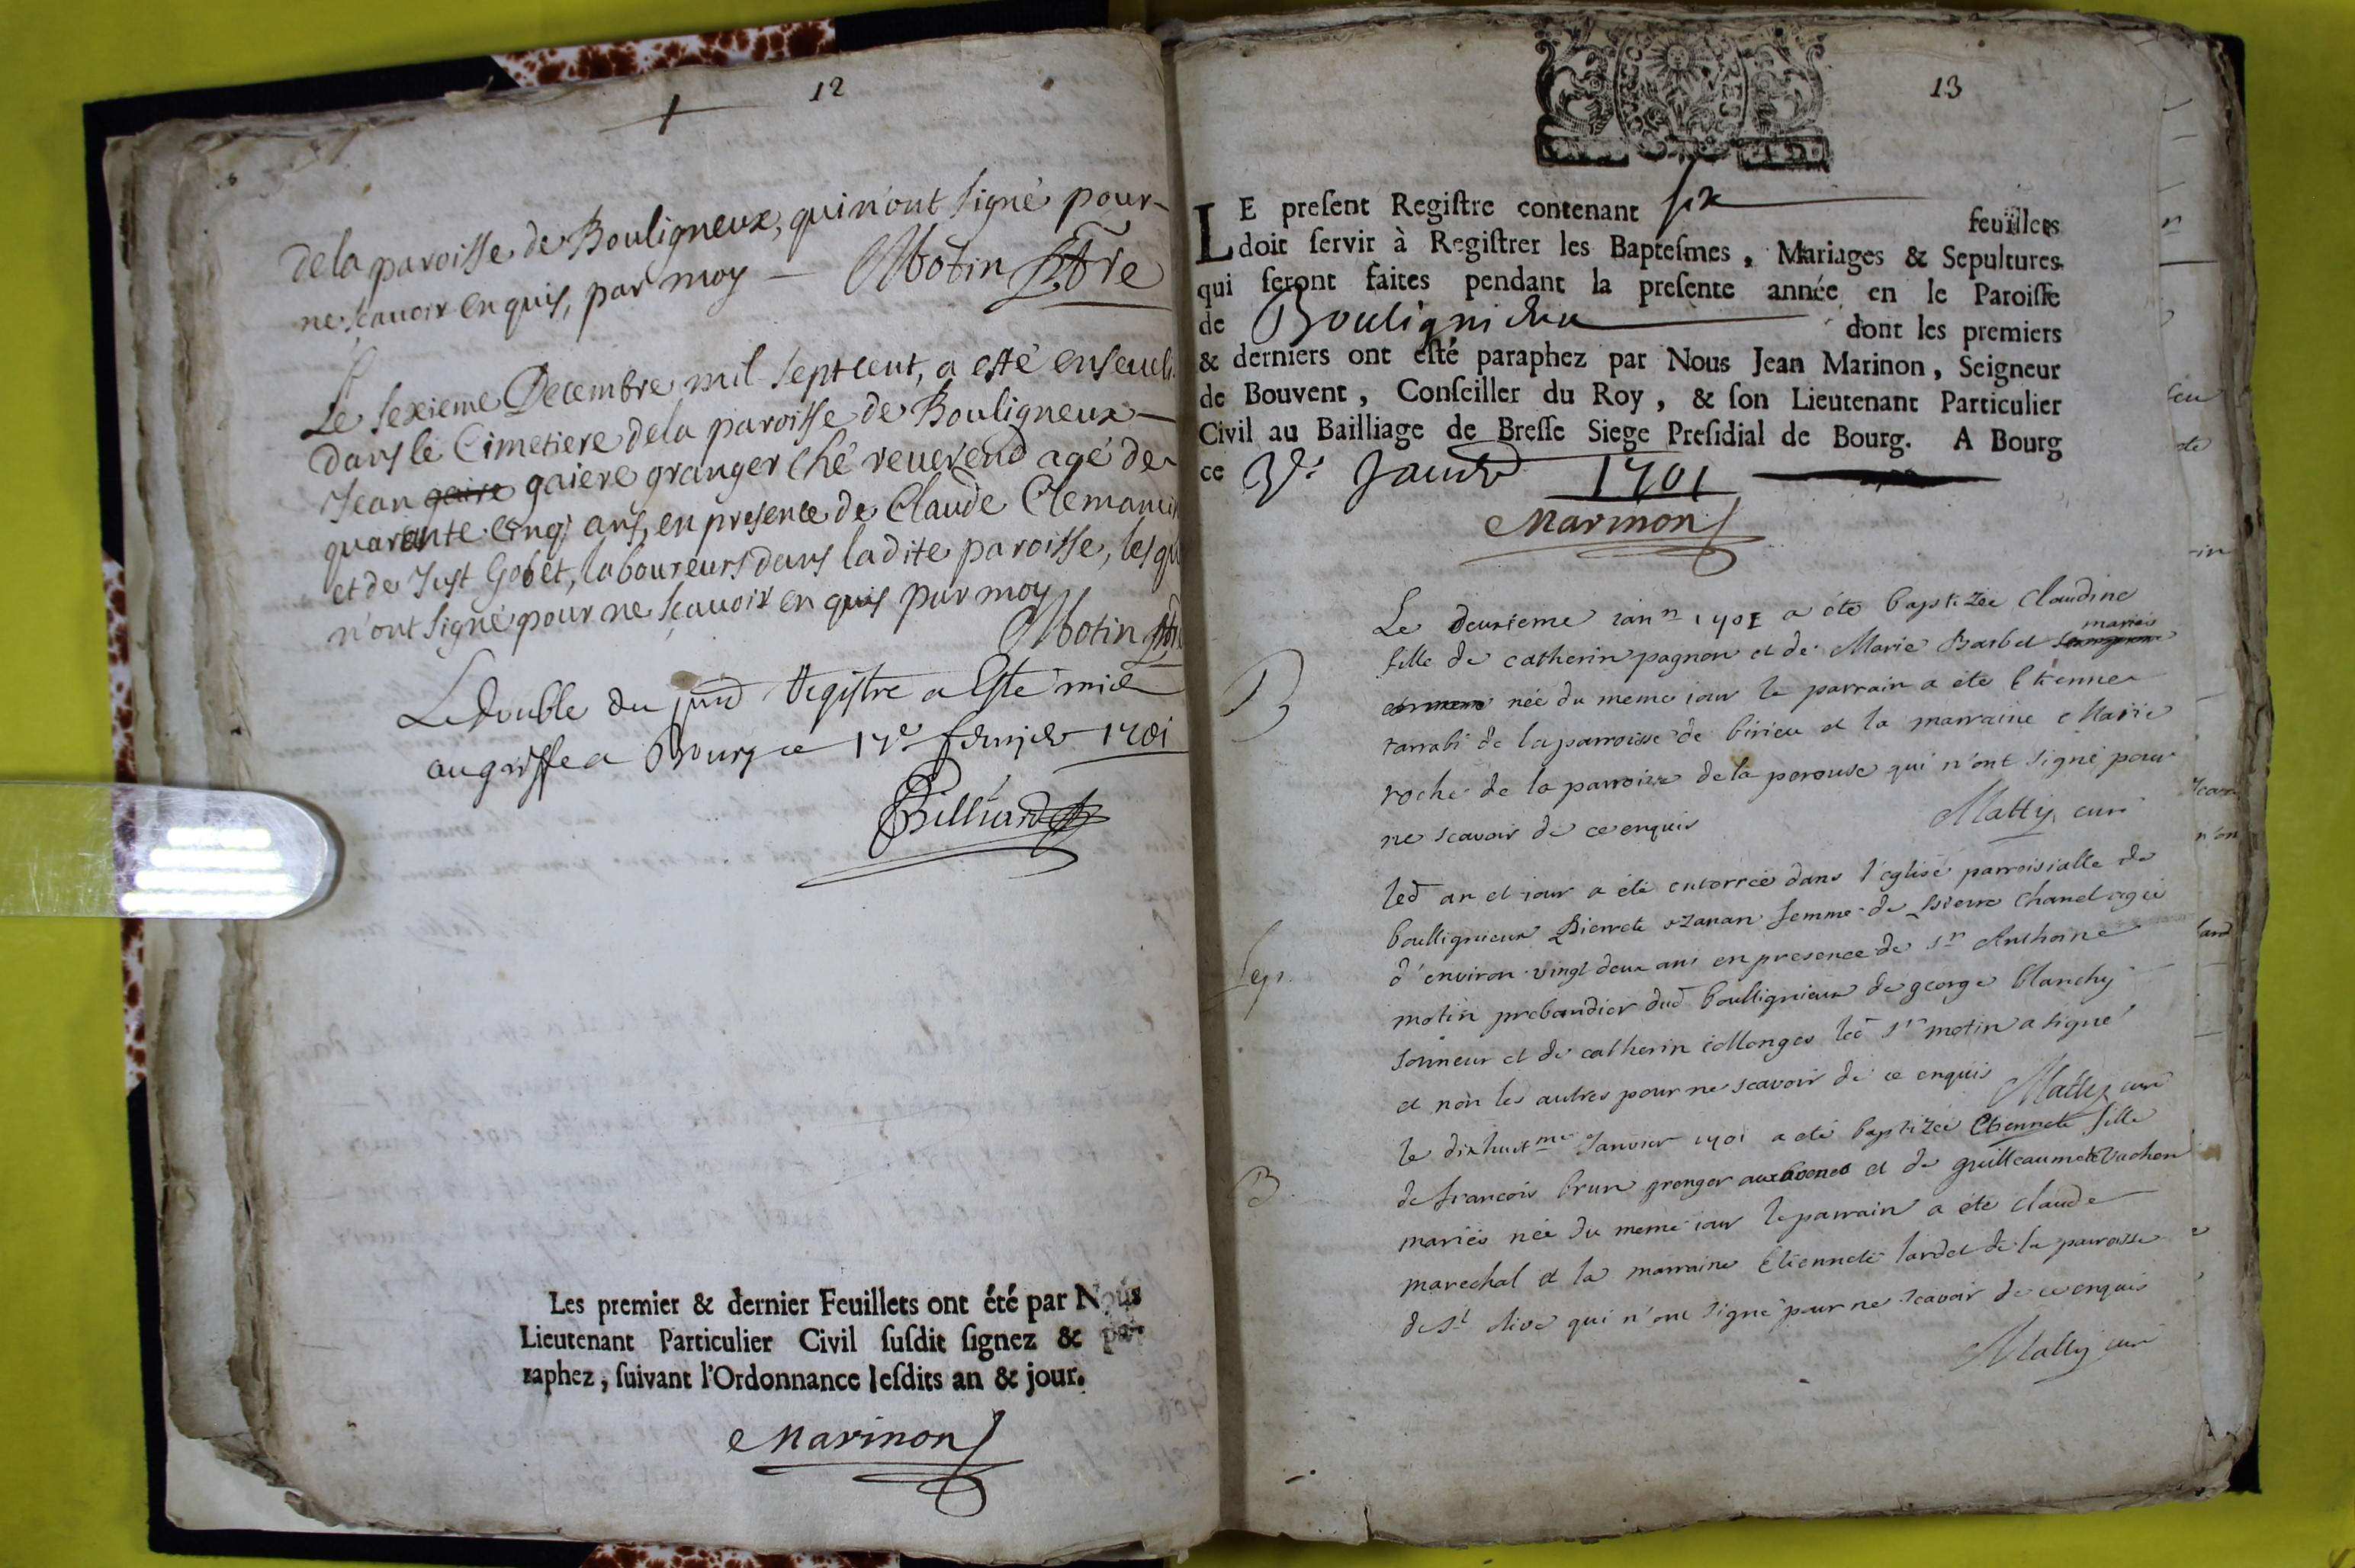 12
de la paroisse de Bouligneux, qui n'ont signé pour
ne scauoir enquis, par moy — Motin ptre
Le sexieme Decembre mil sept cent, a esté enseueli
dans le Cimetiere de la paroisse de Bouligneux —
Jean gaiere granger ché reuerend agé de
quarente cinq ans, en presence de Claude Clemancin
et de Just Gobet, laboureurs dans ladite paroisse, lesqu
n'ont signé pour ne scauoir enquis par moy
Motin ptre
Le double du pnt Registre a Esté mis
au greffe a Bourg ce 17e feburier 1701
Billiard
Les premier & dernier Feuillets ont été par Nous
Lieutenant Particulier Civil ſuſdit ſignez & pa-
raphez, ſuivant l'Ordonnance leſdits an & jour.
Marinon
13
LE preſent Regiſtre contenant six feuillets
doit ſervir à Regiſtrer les Bapteſmes, Mariages & Sepultures
qui ſeront faites pendant la preſente année en le Paroiſſe
de Boulignieu dont les premiers
& derniers ont eſté paraphez par Nous Jean Marinon, Seigneur
de Bouvent, Conſeiller du Roy, & ſon Lieutenant Particulier
Civil au Bailliage de Breſſe Siege Preſidial de Bourg. A Bourg
ce Janvr 1701
Marinon
Le deuxieme ianr 1701 a été baptizée Claudine
fille de catherin pagnon et de Marie Barbet mariés
B
née du meme iour le parrain a été Etienne
tarrabi de la parroisse de birieu et la marraine Marie
roche de la parroisse de la perouse qui n'ont signé pour
ne scavoir de ce enquis Matty curé
led an et iour a été enterrée dans l'église parroisialle de
boullignieux Pierrete ozanan femme de pierre Chanel agée
Sep.
d'environ vingt deux ans en presence de sr Anthoine
motin prebandier dud boullignieux de george blanchy
sonneur et de catherin collonges led sr motin a signé
et non les autres pour ne scavoir de ce enquis Matty curé
le dixhuitme Janvier 1701 a été baptizée Etiennete fille
B.
de francois brun grenger et de guilleaumete Vuchon
mariés née du meme iour le parrain a été claude
marechal et la marraine Etiennete lardet de la parroisse
de st olive qui n'ont signé pour ne scavoir de ce enquis
Matty curé